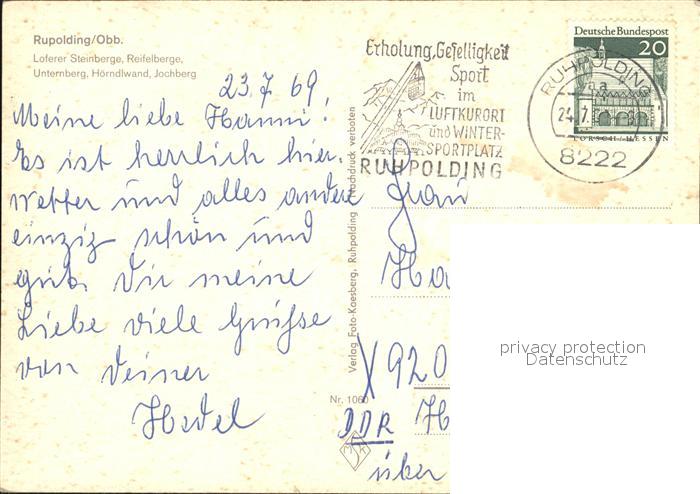 Rupolding/Obb.
Loferer Steinberge, Reifelberge,
Unternberg, Hörndlwand, Jochberg
23.7.69
Meine liebe Hanni!
Es ist herrlich hier.
Wetter und alles andere
einzig schön und
gut. Dir meine
Liebe viele Grüsse
von Deiner
Hedel
Verlag Foto-Kaesberg, Ruhpolding Nachdruck verboten
Nr. 1060
Erholung, Geselligkeit
Sport
im
LUFTKURORT
und WINTER-
SPORTPLATZ
RUHPOLDING
RUHPOLDING
24.7.
8222
Deutsche Bundespost
20
LORSCH/HESSEN
Frau
Ha
X 920
DDR H
über
privacy protection
Datenschutz